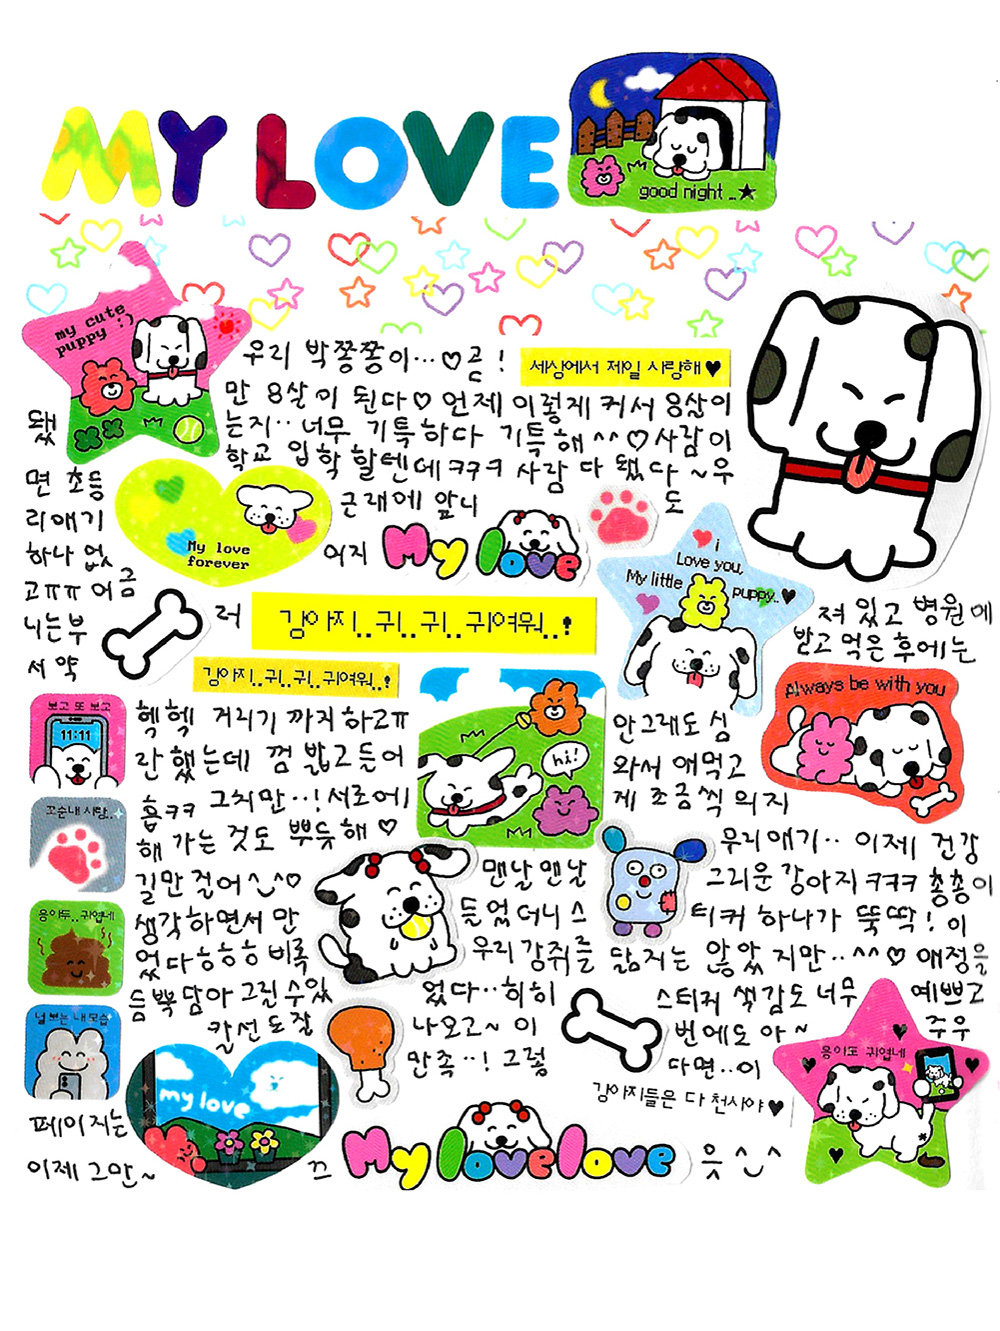 MY LOVE
good night ..★
my cute
puppy :)
우리 박쫑쫑이...♡곧!
세상에서 제일 사랑해♥
만 8살이 된다♡ 언제 이렇게 커서 8살이
됐 는지.. 너무 기특하다 기특해^^♡사람이
학교 입학할텐데ㅋㅋㅋ 사람 다 됐다~우
면 초등 근래에 앞니 도
리애기
My love
forever
하나 없 어지 My love
i
Love you,
My little
puppy..♥
고ㅠㅠ 어금
니는부 러 강아지..귀..귀..귀여워..! 져 있고 병원에
서 약 강아지..귀..귀..귀여워..! 받고 먹은 후에는
보고 또 보고
11:11
Always be with you
헥헥 거리기 까지 하고ㅠ 안그래도 심
hi!
란했는데 껌 밟고들어 와서 애먹고
흡ㅋㅋ 그치만..!서로에 게 조금씩 의지
꼬순내 사랑..
해 가는 것도 뿌듯해♡ 우리애기.. 이제 건강
길만 걸어^_^♡ 맨날맨날 그리운강아지ㅋㅋㅋ 총총이
응아두..귀엽네
생각하면서 만 들었더니 스 티커 하나가 뚝딱! 이
었다ㅎㅎㅎ 비록 우리강쥐를 닮지는 않았지만..^^♡ 애정을
듬뿍담아 그린수있 었다..히히 스티커 색감도 너무 예쁘고
널 보는 내 모습
칼선도잘 나오고~ 이 번에도 아~ 주우
my love
만족..! 그렇 다면..이
응이도 귀엽네
강아지들은 다 천사야♥
페이지는
이제 그만~ 끄 My lovelove 읏^_^